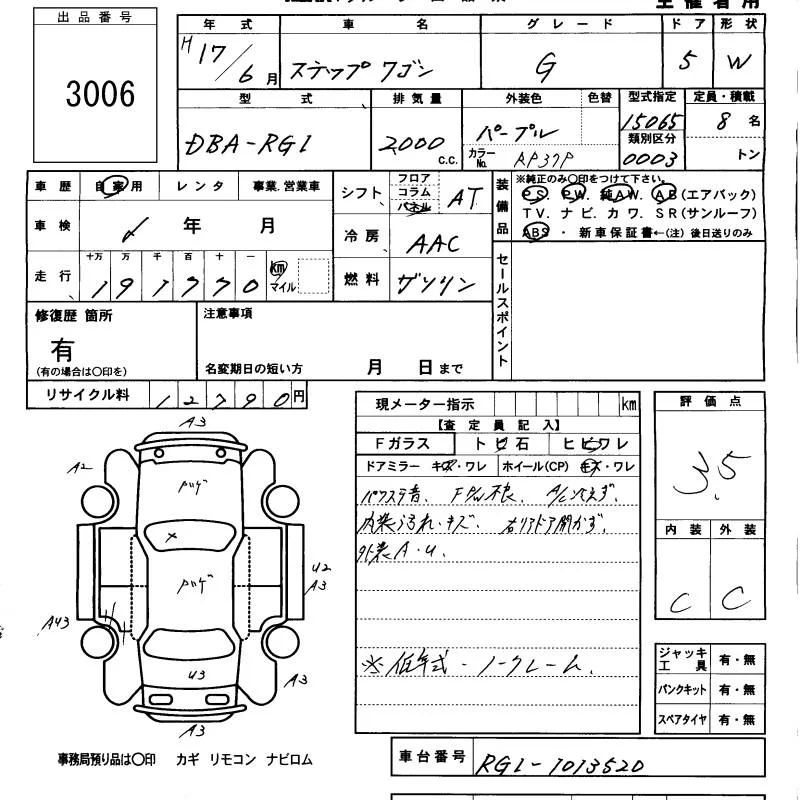 出品番号
3006
年式 車名 グレード ドア 形状
H17/6月 ステップワゴン G 5 W
型式 排気量 外装色 色替 型式指定 定員・積載
DBA-RG1 2000 C.C. パープル 15065 8名
類別区分
カラーNo. RP37P 0003 トン
車歴 自家用 レンタ 事業.営業車
シフト フロア コラム パネル AT
装備品
※純正のみ〇印をつけて下さい。
PS. PW. 純AW. AB(エアバック)
TV. ナビ. カワ. SR(サンルーフ)
ABS ・ 新車保証書←(注) 後日送りのみ
車検 年 月
冷房 AAC
走行 十万 万 千 百 十 一
191770 km マイル
燃料 ガソリン
セールスポイント
修復歴 箇所
有
(有の場合は〇印を)
注意事項
名変期日の短い方 月 日まで
リサイクル料 12790円
現メーター指示 km
【査定員記入】
Fガラス トビ石 ヒビワレ
ドアミラー キズ・ワレ ホイール(CP) キズ・ワレ
パワステ音、 F 不良、 A/C冷えず、
内装汚れ・キズ、 右リアドア開かず、
外装A・U、
※低年式・ノークレーム、
評価点
3.5
内装 外装
C C
A3
A2
ハゲ
ハゲ
U2
A3
A43
U3
A3
A3
ジャッキ工具 有・無
パンクキット 有・無
スペアタイヤ 有・無
事務局預り品は〇印 カギ リモコン ナビロム
車台番号 RG1-1013520